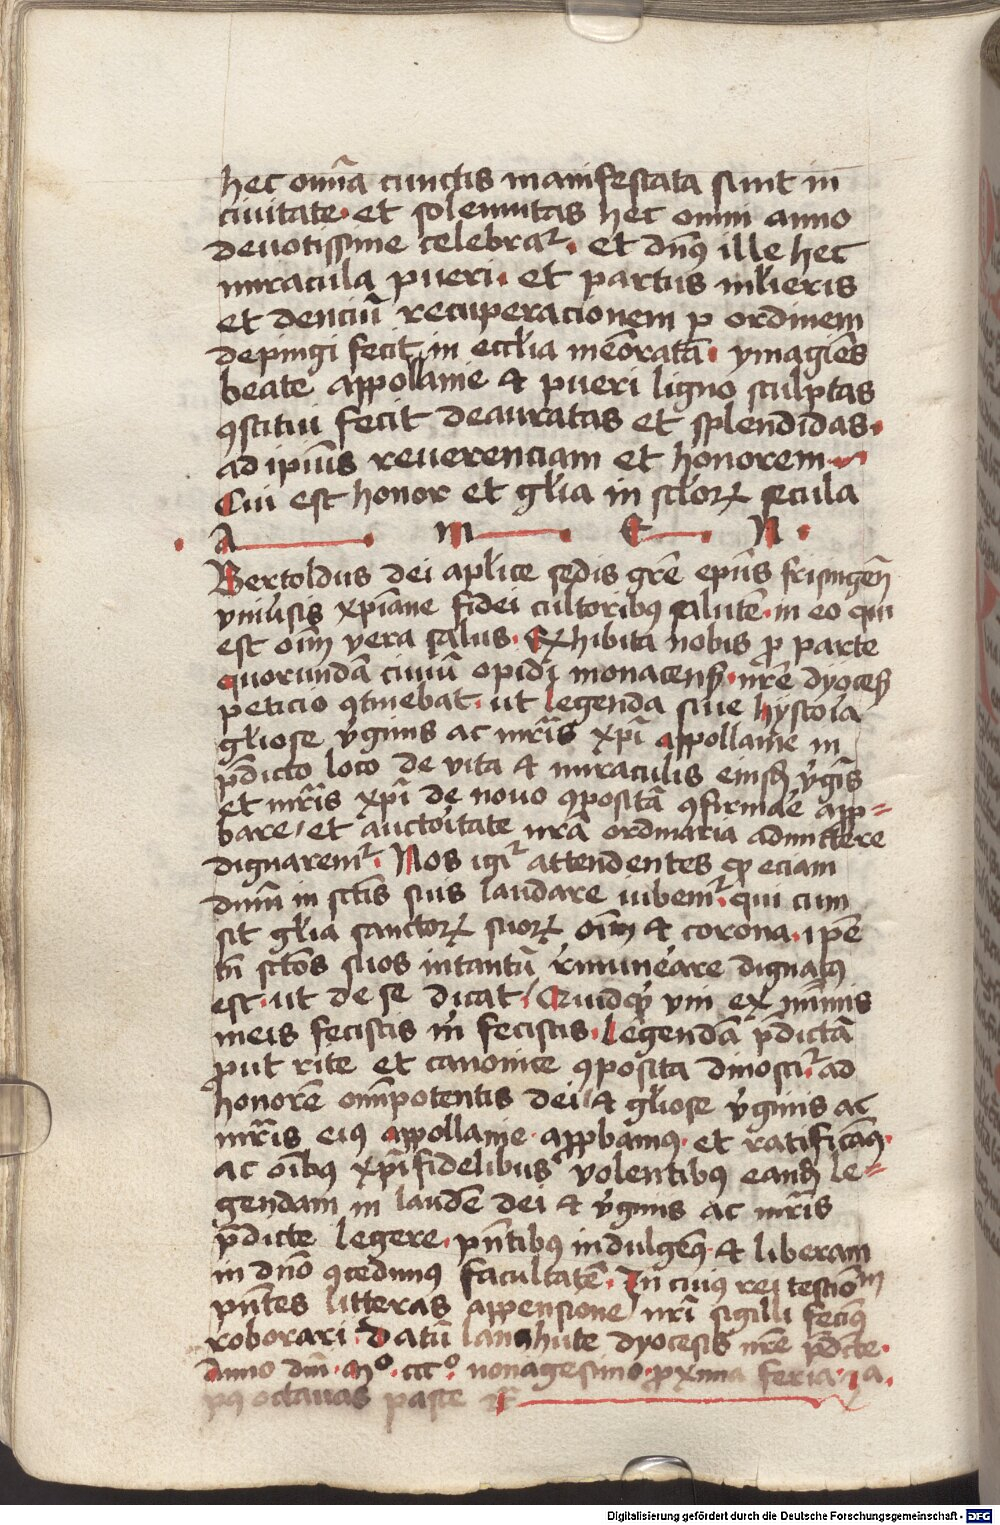 hec omnīa cunctis manifestata sunt in
ciuitate · et solemnitas hec omni anno
deuotissime celebrat᷑ · et dn̄s ille hec
miracula pueri · et partus ml̄ieris
et denciū recuperacionem p ordinem
depingi fecit in eccl̄ia mēoratā · ymagiēs
beate appollonie & pueri ligno sculptas
ꝯstitui fecit deauratas et splendidas ·
ad ipīus reuerenciam et honorem
Cui est honor et gl̄ia in sc̄loꝝ secula
· A · m · E · N ·
Bertoldus dei apl̄ice sedis grē ep̄us frisingen̄
vniūsis xp̄iane fidei cultoribꝰ salutē · in eo qui
est oīm vera salus · Exhibita nobis ꝓ parte
quorundā ciuiū opidi monacens̄ · nr̄e dyoces̄
peticio ꝯtinebat · ut legenda siue hystoīa
gl̄iose v̄ginis ac mr̄is xp̄i appollonie in
p̄dicto loco de vita & miraculis eiusd̄ v̄gīs
et mr̄is xp̄i de nouo ꝯpositā ꝯfirmāe app=
bare / et auctoītate nr̄a ordinaria admittere
dignarem᷑ · Nos igi᷑ attendentes ꝙ eciam
dn̄m in sc̄tis suis laudare iubem᷑ · qui cum
sit gl̄ia sanctoꝝ suoꝝ oīm & corona · ipē
tn̄ sc̄tos suos intantū r̄muneare dignatꝰ
est · ut de se dicat / Quidqͥd vni ex minīs
meis fecistis m̄ fecistis · Legendā p̄dictā
ꝓut rite et canonice ꝯposita dinosci᷑ · ad
honorē omīpotentis dei & gl̄iose v̄ginis ac
mr̄is eiꝰ appollonie · appbamꝰ · et ratificāꝰ ·
ac oībꝰ xp̄ifidelibus volentibꝰ eand̄ le=
gendam in laudē dei & v̄ginis ac mr̄is
p̄dicte legere · pn̄tibꝰ indulgeꝰ · & liberam
in dn̄o ꝯcedimꝰ facultatē · In cuius rei testiōm
pn̄tes litteras appensione nr̄i sigilli fecimꝰ
roborari · Datū lanshute dyocesis nr̄e p̄dc̄te ·
Anno dn̄i · Mº · cccº · nonagesimo · ꝓxima feria · 2a ·
pꝰ octauas pasce
Digitalisierung gefördert durch die Deutsche Forschungsgemeinschaft - DFG